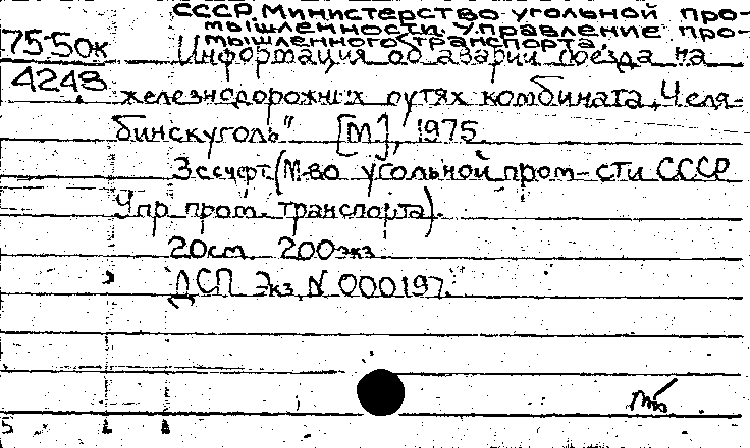 СССР. Министерство угольной про-
мышленности. Управление про-
мышленного транспорта.
75-50к
Информация об аварии поезда на
4248
железнодорожных путях комбината „Челя-
бинскуголь" [М], 1975
3 с с черт. (М-во угольной пром-сти СССР
Упр. пром. транспорта).
20см. 200экз.
ДСП Экз. N 000197.
5